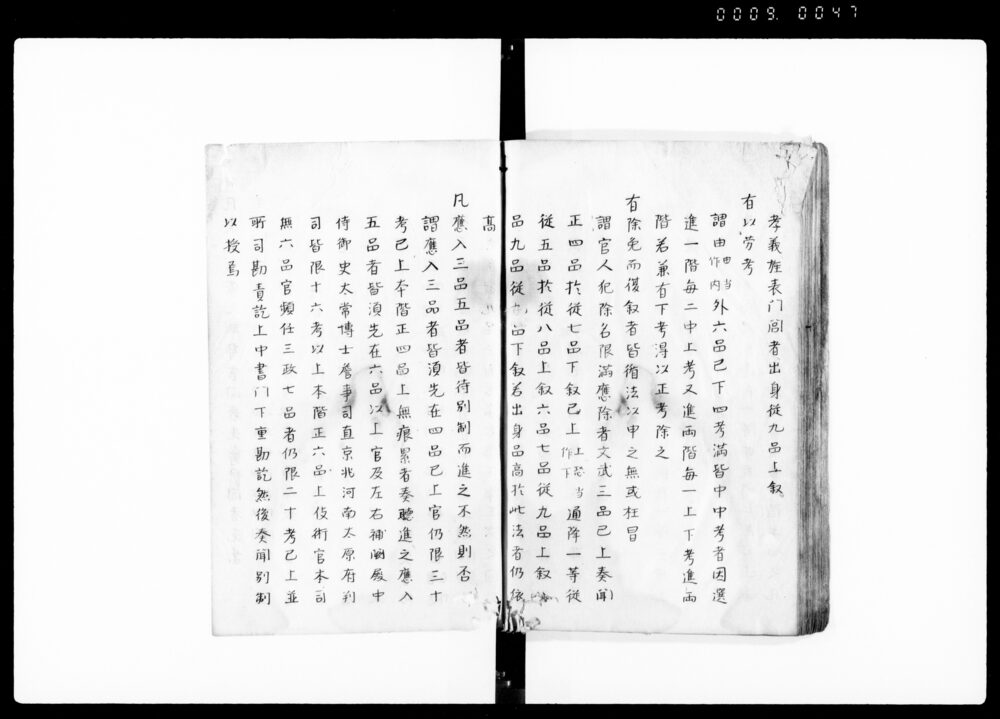 0009. 0047
孝義旌表门閭者出身從九品上叙
有以劳考
謂由由当作内外六品已下四考滿皆中中考者因選
進一階每二中上考又進両階每一上下考進両
階若兼有下考得以正考除之
有除免而復叙者皆循法以申之無或枉冒
謂官人犯除名限滿應除者文武三品已上奏聞
正四品於從七品下叙已上上恐当作下通降一等從
從五品於從八品上叙六品七品從九品上叙
品九品從品下叙若出身品高於此法者仍依
高
凡應入三品五品者皆待别制而進之不然則否
謂應入三品者皆須先在四品已上官仍限三十
考已上本階正四品上無痕累者奏聽進之應入
五品者皆須先在六品以上官及左右補闕殿中
侍御史太常博士詹事司直京兆河南太原府判
司皆限十六考以上本階正六品上伎術官本司
無六品官頻任三政七品者仍限二十考已上並
所司勘責訖上中書门下重勘訖然後奏聞别制
以授焉